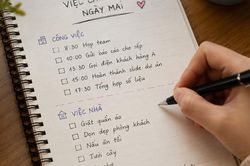 VIỆC CẦ
NGÀY MAI
CÔNG VIỆC
8:30 Họp team
10:00 Gửi báo cáo cho sếp
13:30 Gọi điện khách hàng A
15:00 Hoàn thành slide dự án
17:30 Tổng hợp số liệu
VIỆC NHÀ
Giặt quần áo
Dọn dẹp phòng khách
Nấu ăn tối
Tưới cây